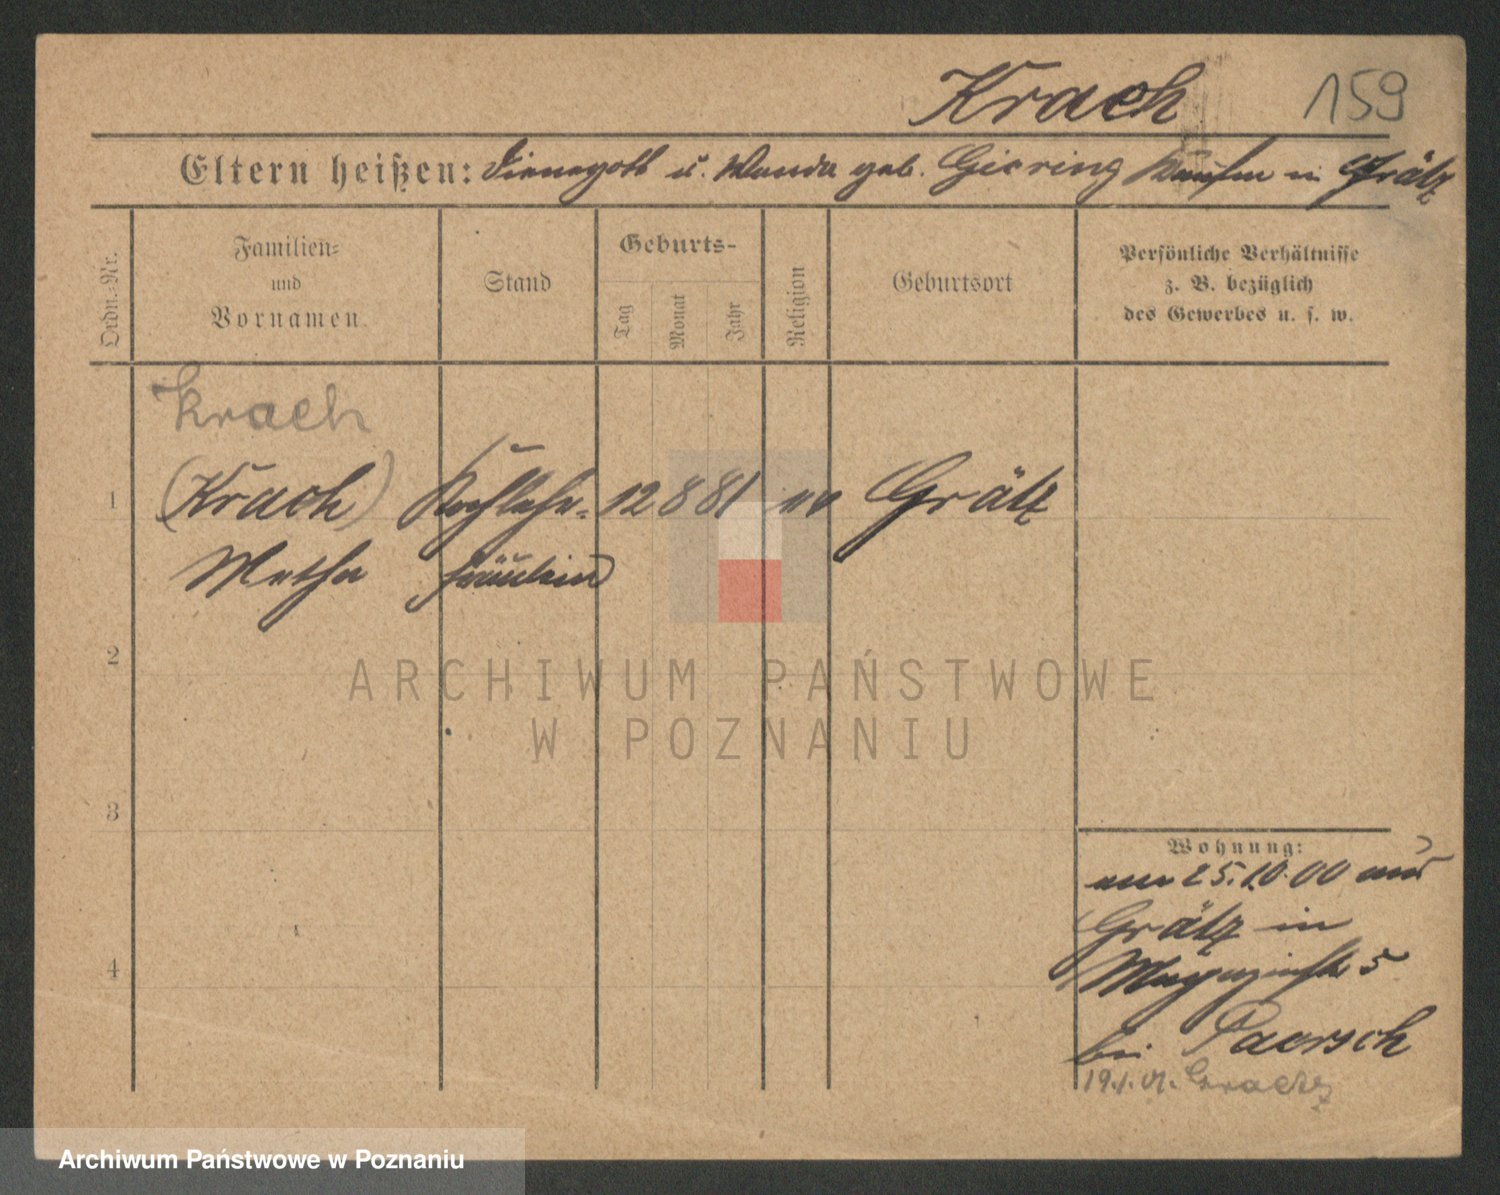 Krach 159
Eltern heißen: Dienegott u. Wanda geb. Giering Kaufm in Grätz
Ordn.-Nr.
Familien-
und
Vornamen
Stand
Geburts-
Tag
Monat
Jahr
Religion
Geburtsort
Persönliche Verhältnisse
z. B. bezüglich
des Gewerbes u. s. w.
Krach
1 (Krach) Kochlehr- 12 8 81 ev Grätz
Metha fräulein
2
ARCHIWUM PAŃSTWOWE
W POZNANIU
3
Wohnung:
am 25.10.00 aus
Grätz in
Magazinstr 5
4
bei Paersch
19.1.01. Graetz
Archiwum Państwowe w Poznaniu